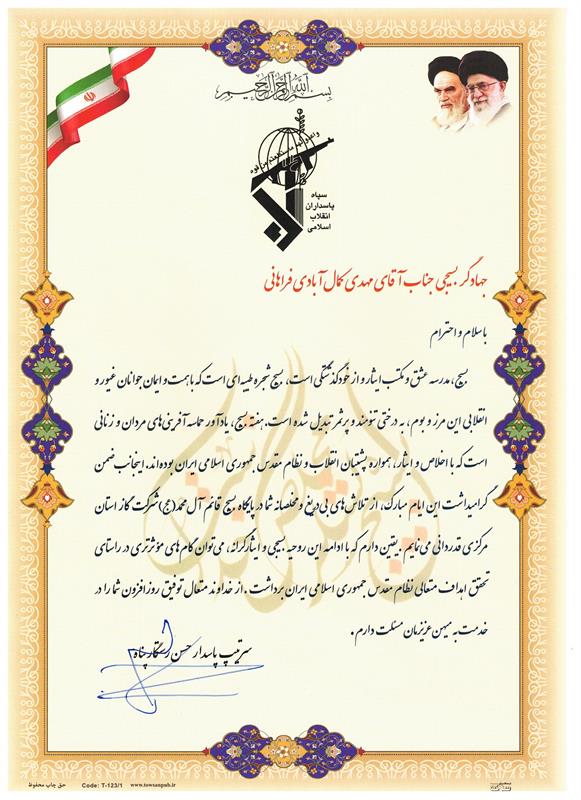 بسم الله الرحمن الرحیم
واعدوا لهم ما استطعتم من قوه
سپاه
پاسداران
انقلاب
اسلامی
جهادگر بسیجی جناب آقای مهدی کمال آبادی فراهانی
باسلام و احترام
بسیج، مدرسه عشق و مکتب ایثار و از خودگذشتگی است، بسیج شجره طیبه ای است که با همت و ایمان جوانان غیور و
انقلابی این مرز و بوم، به درختی تنومند و پرثمر تبدیل شده است. هفته بسیج، یادآور حماسه آفرینی های مردان و زنانی
است که با اخلاص و ایثار، همواره پشتیبان انقلاب و نظام مقدس جمهوری اسلامی ایران بوده اند. اینجانب ضمن
گرامیداشت این ایام مبارک، از تلاش های بی دریغ و مخلصانه شما در پایگاه بسیج قائم آل محمد (عج) شرکت گاز استان
مرکزی قدردانی می نمایم. یقین دارم که با ادامه این روحیه بسیجی و ایثارگرانه، می توان گام های مؤثرتری در راستای
تحقق اهداف متعالی نظام مقدس جمهوری اسلامی ایران برداشت. از خداوند متعال توفیق روزافزون شما را در
خدمت به میهن عزیزمان مسئلت دارم.
سرتیپ پاسدار حسن رستگارپناه
حق چاپ محفوظ Code: T-123/1 www.towsanpub.ir